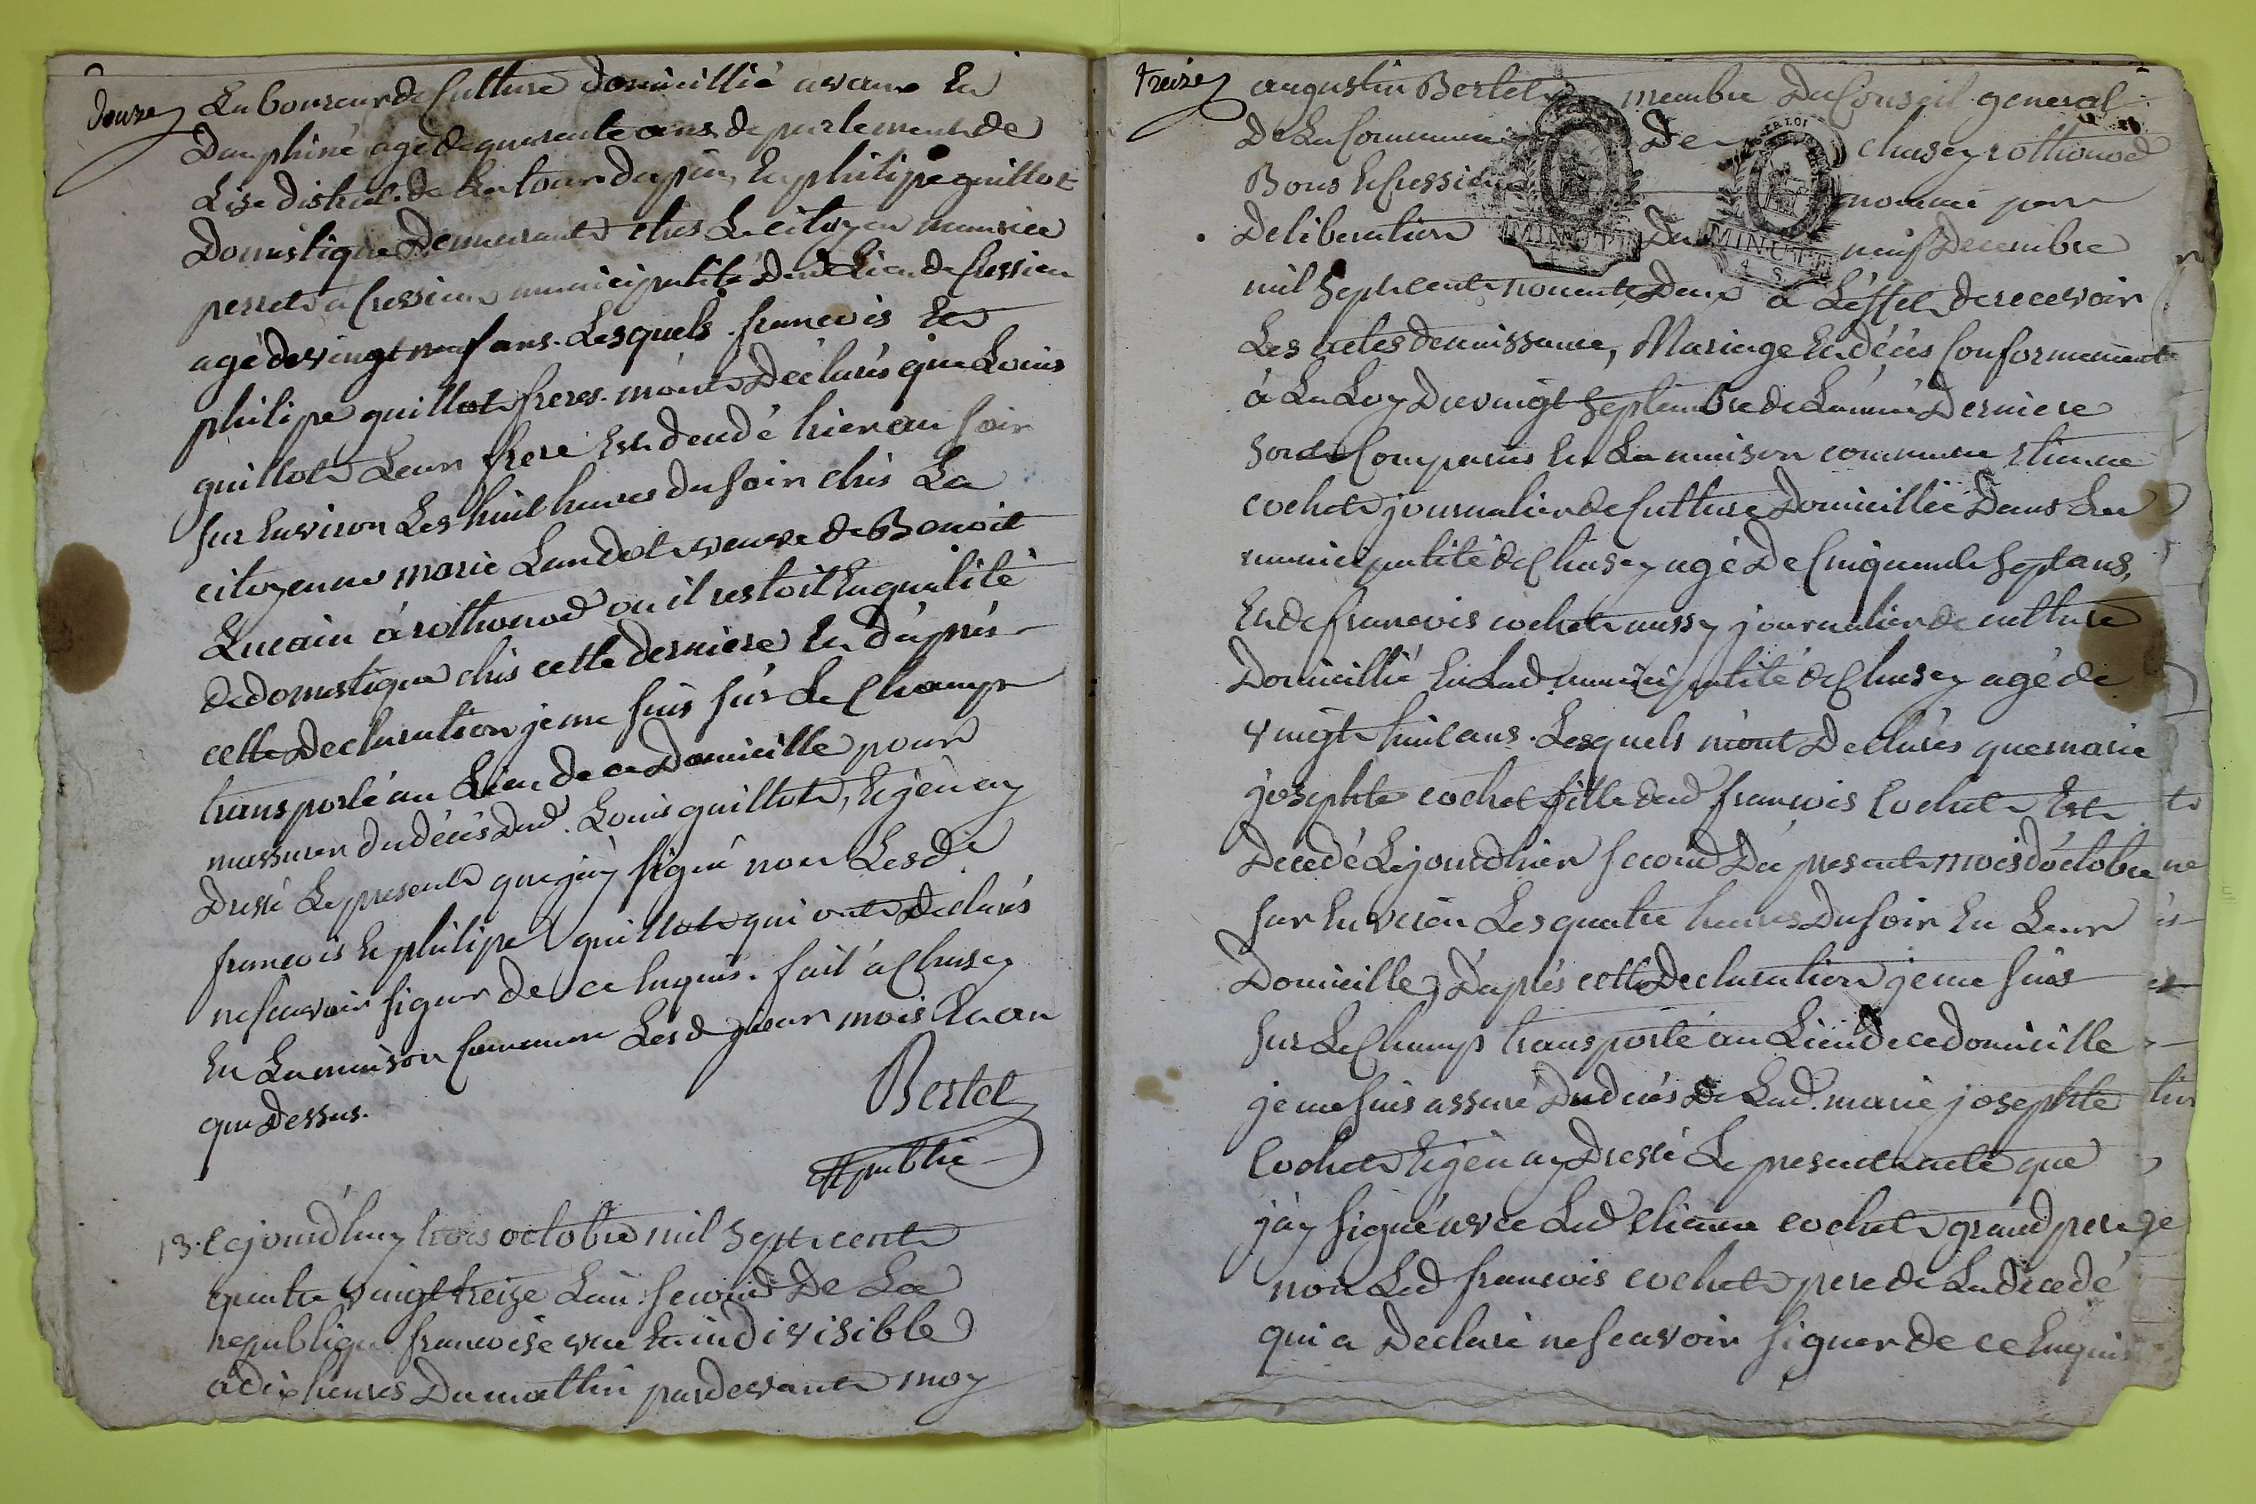 douze
Laboureur de Culture domicillié a veure En
Dauphiné agé de quarente ans departement de
Lise district de La tour dupin, Et philipe guillot
Domestique Demeurant chés Le citoyen maurice
perret a Cressieu municipalité dud Lieu de Cressieu
agé de vingt neuf ans. Lesquels francois Et
philipe guillot freres mont Déclarés que Louis
guillot Leur frere Est décedé hier au soir
sur Environ Les huit heures du soir chés La
citoyenne marie Landot veuve de Benoit
Lucain à rothonod ou il restoit En qualité
de domestique chés cette derniere Et d'aprés
cette Declaration je me suis sur Le Champ
transporté au Lieu de ce Domicille pour
massurer du décés dud. Louis guillot, Et jen ay
Dressé Le present que j'ay signé non Lesd
francois Et philipe guillot qui ont declarés
ne scavoir signer de ce Enquis. fait à Chasey
En La maison Commune Lesd jour mois Et an
que Dessus.
Bertet
off public
13. Cejourd'huy trois octobre mil sept cent
quatre vingt treize L'an second De La
republique francoise une Et indivisible
a dix heures Du mattin pardevant moy
treize
augustin Bertet membre Du Conseil general
De La Commune De chasey rothonod
Bons Et Cressieu nommé par
Deliberation Du neuf Decembre
mil Sept cent nonente Deux à L'effet de recevoir
Les actes de naissance, Mariage Et décés Conformement
à La Loy Du vingt Septembre de L'année Derniere
Sont Comparus En La maison commune Etienne
cochet journalier de Culture Domicillié Dans La
municipalité de Chasey agé De Cinquente Sept ans,
Et de francois cochet aussy journalier de culture
Domicillié En Lad municipalité de Chasey agé de
vingt huit ans. Lesquels m'ont Déclarés que marie
josephte cochet fille dud francois Cochet Est
Decedé Le jour d'hier second Du present mois d'octobre
sur Environ Les quatre heures Du soir En Leur
Domicille, D'aprés cette Declaration je me suis
sur Le Champ transporté au Lieu de ce domicille
je me suis assuré Du décés de Lad. marie josephte
Cochet Et j'en ay Dressé Le present acte que
j'ay signé avec Led Etienne cochet grand pere
non Led francois cochet pere de La décedé
qui a Declaré ne scavoir signer de ce Enquis
LA LOI
MINUTE
4 S
MINUTE
4 S